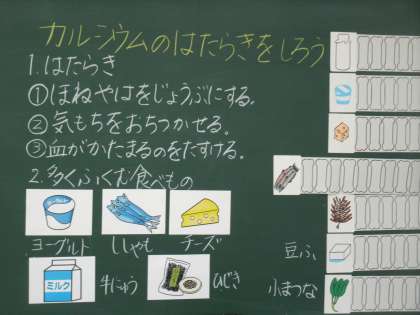 カルシウムのはたらきをしろう
1.はたらき
①ほねやはをじょうぶにする。
②気もちをおちつかせる。
③血がかたまるのをたすける。
2.多くふくむ食べもの
ヨーグルト ししゃも チーズ
ミルク 牛にゅう ひじき
豆ふ
小まつな